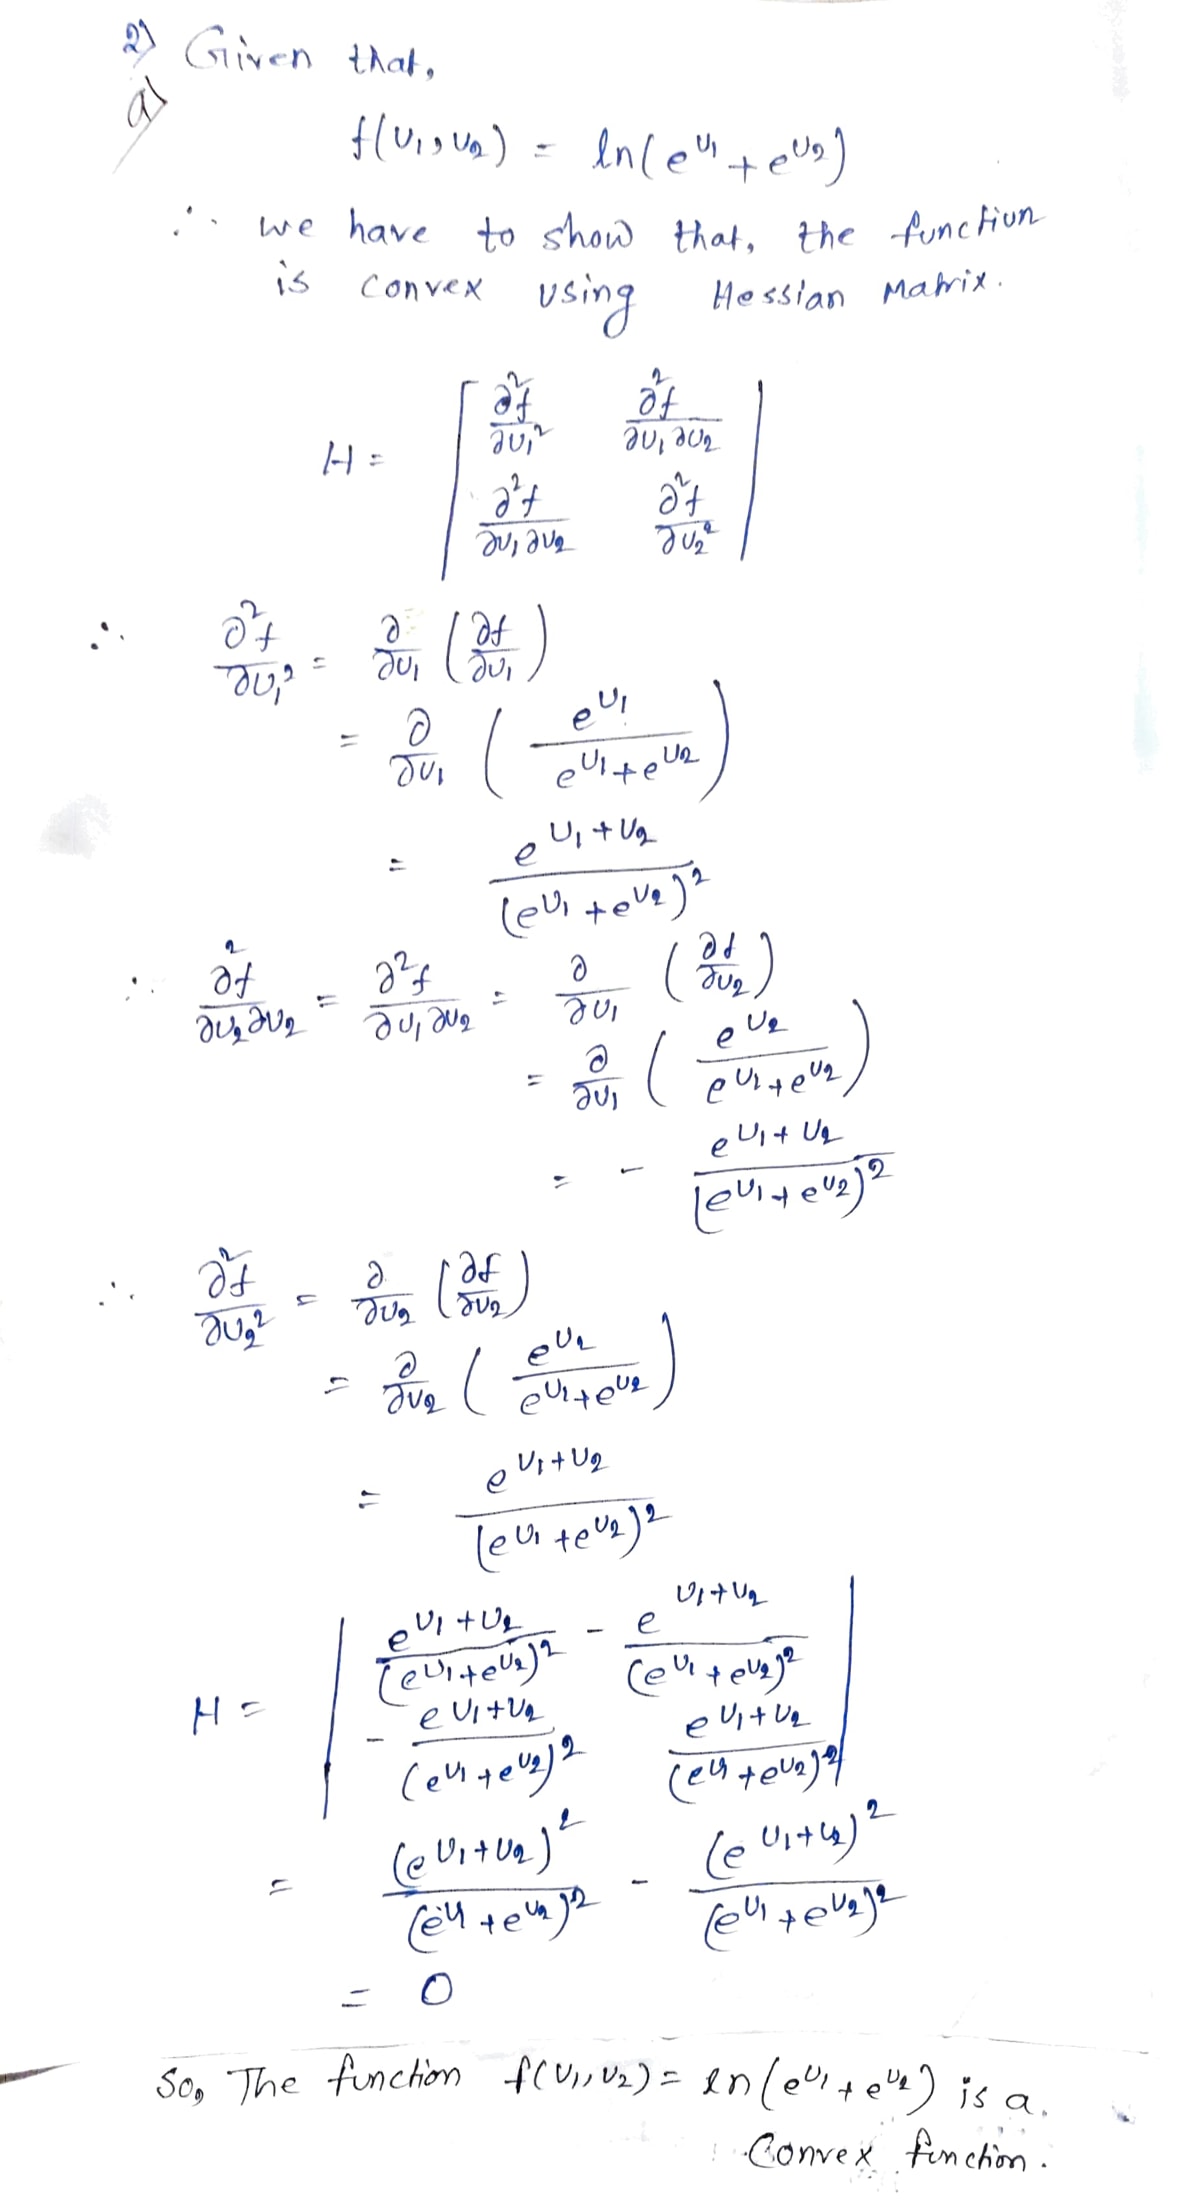 2) Given that,
a)
f(U₁, U₂) = ln(e^U₁ + e^U₂)
∴ we have to show that, the function
is convex using Hessian Matrix.
H = | ∂²f/∂U₁² ∂²f/∂U₁∂U₂ |
| ∂²f/∂U₁∂U₂ ∂²f/∂U₂² |
∴ ∂²f/∂U₁² = ∂/∂U₁ (∂f/∂U₁)
= ∂/∂U₁ (e^U₁ / (e^U₁ + e^U₂))
= e^(U₁+U₂) / (e^U₁ + e^U₂)²
∴ ∂²f/∂U₂∂U₂ = ∂²f/∂U₁∂U₂ = ∂/∂U₁ (∂f/∂U₂)
= ∂/∂U₁ (e^U₂ / (e^U₁ + e^U₂))
= - e^(U₁+U₂) / (e^U₁ + e^U₂)²
∴ ∂²f/∂U₂² = ∂/∂U₂ (∂f/∂U₂)
= ∂/∂U₂ (e^U₂ / (e^U₁ + e^U₂))
= e^(U₁+U₂) / (e^U₁ + e^U₂)²
H = | e^(U₁+U₂) / (e^U₁ + e^U₂)² - e^(U₁+U₂) / (e^U₁ + e^U₂)² |
| - e^(U₁+U₂) / (e^U₁ + e^U₂)² e^(U₁+U₂) / (e^U₁ + e^U₂)² |
= (e^(U₁+U₂))² / (e^U₁ + e^U₂)² - (e^(U₁+U₂))² / (e^U₁ + e^U₂)²
= 0
So, The function f(U₁, U₂) = ln(e^U₁ + e^U₂) is a.
Convex function.